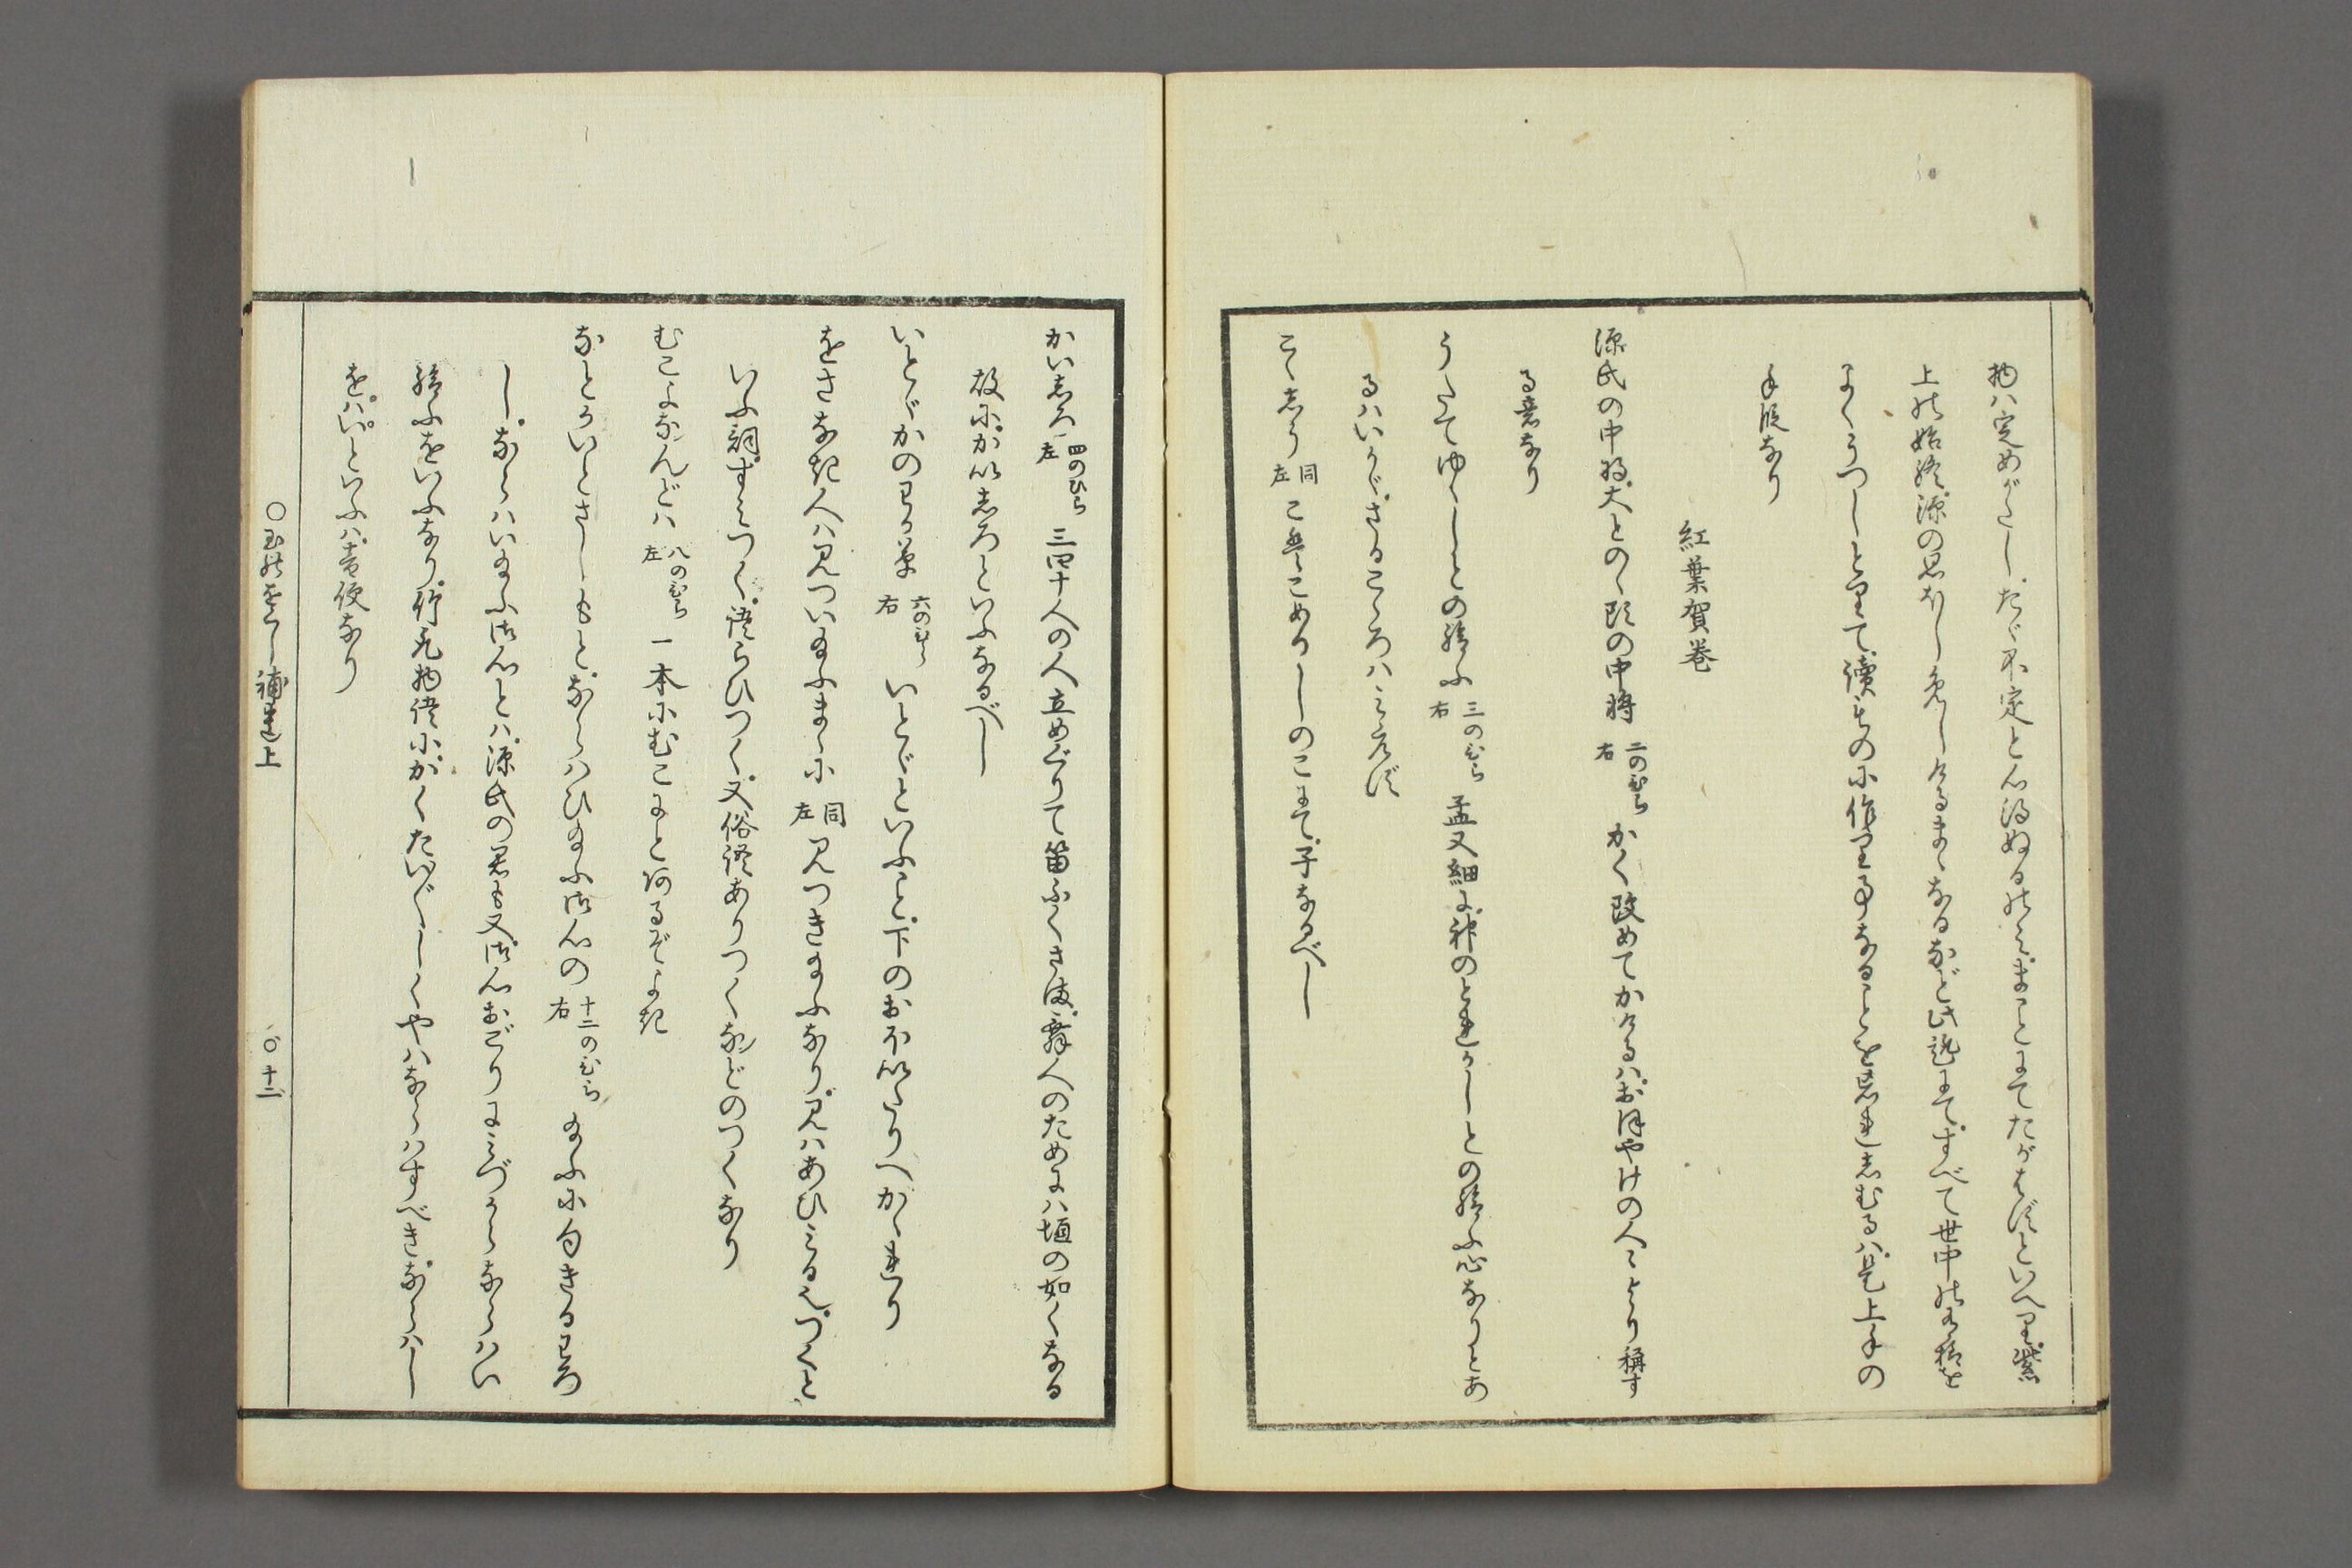 物ハ定めがたし、たゞ不定と心得ぬるのミ、まことにてたがはずといへり、紫
上の始終、源の思ほしめしけるまゝなるなど、此説にて、すべて世中の有様を
よくうつしとりて、讀もの小作り事なることを忘れしむるハ、是上手の
手段なり
紅葉賀巻
源氏の中将、大とのゝ頭の中将 二のひら右 かく改めてかけるハ、おほやけの人々より稱す
る意なり
うたてゆゝしとの給ふ 三のひら右 孟又細に、神のとれかしとの給ふ心なりとあ
るハいかゞ、さるこゝろハミえず
こゝしう 同左 こはこめかしのこにて、子なるべし
かいしろ 四のひら左 三四十人の人立めぐりて笛ふくさま、舞人のためにハ垣の如くなる
故に、かいしろといふなるべし
いとゞかのわか草 六のひら右 いとゞといふこと、下のおぼいたりへかゝれり
をさなき人ハ見つい給ふまゝに 同左 見つき給ふなり、見ハあひミる也、つくと
いふ詞、すミつく、語らひつく、又俗語ありつくなどのつくなり
むこよなんどハ 八のひら左 一本にむこにとあるぞよき
なとかいとさしもと、ならハひ給ふ御心の 十二のひら右 給ふに句きるわろ
し、ならハい給ふ御心とハ、源氏の君も又、御心おごりにミづからならハい
給ふをいふなり、竹取物語に、かくたいだいしくやハならハすべき、ならハし
を、ハいといふハ音便なり
○玉のをくし補遺上
○十二